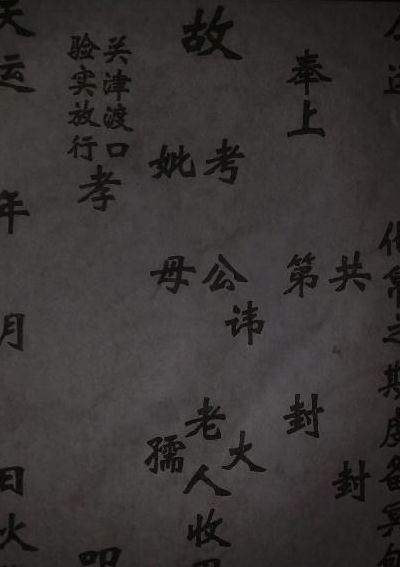 化帛之期虔备冥
共封
奉上第封
故
考公讳大
妣母孺
老人收
关津渡口
验实放行
孝叩
天运年月日火